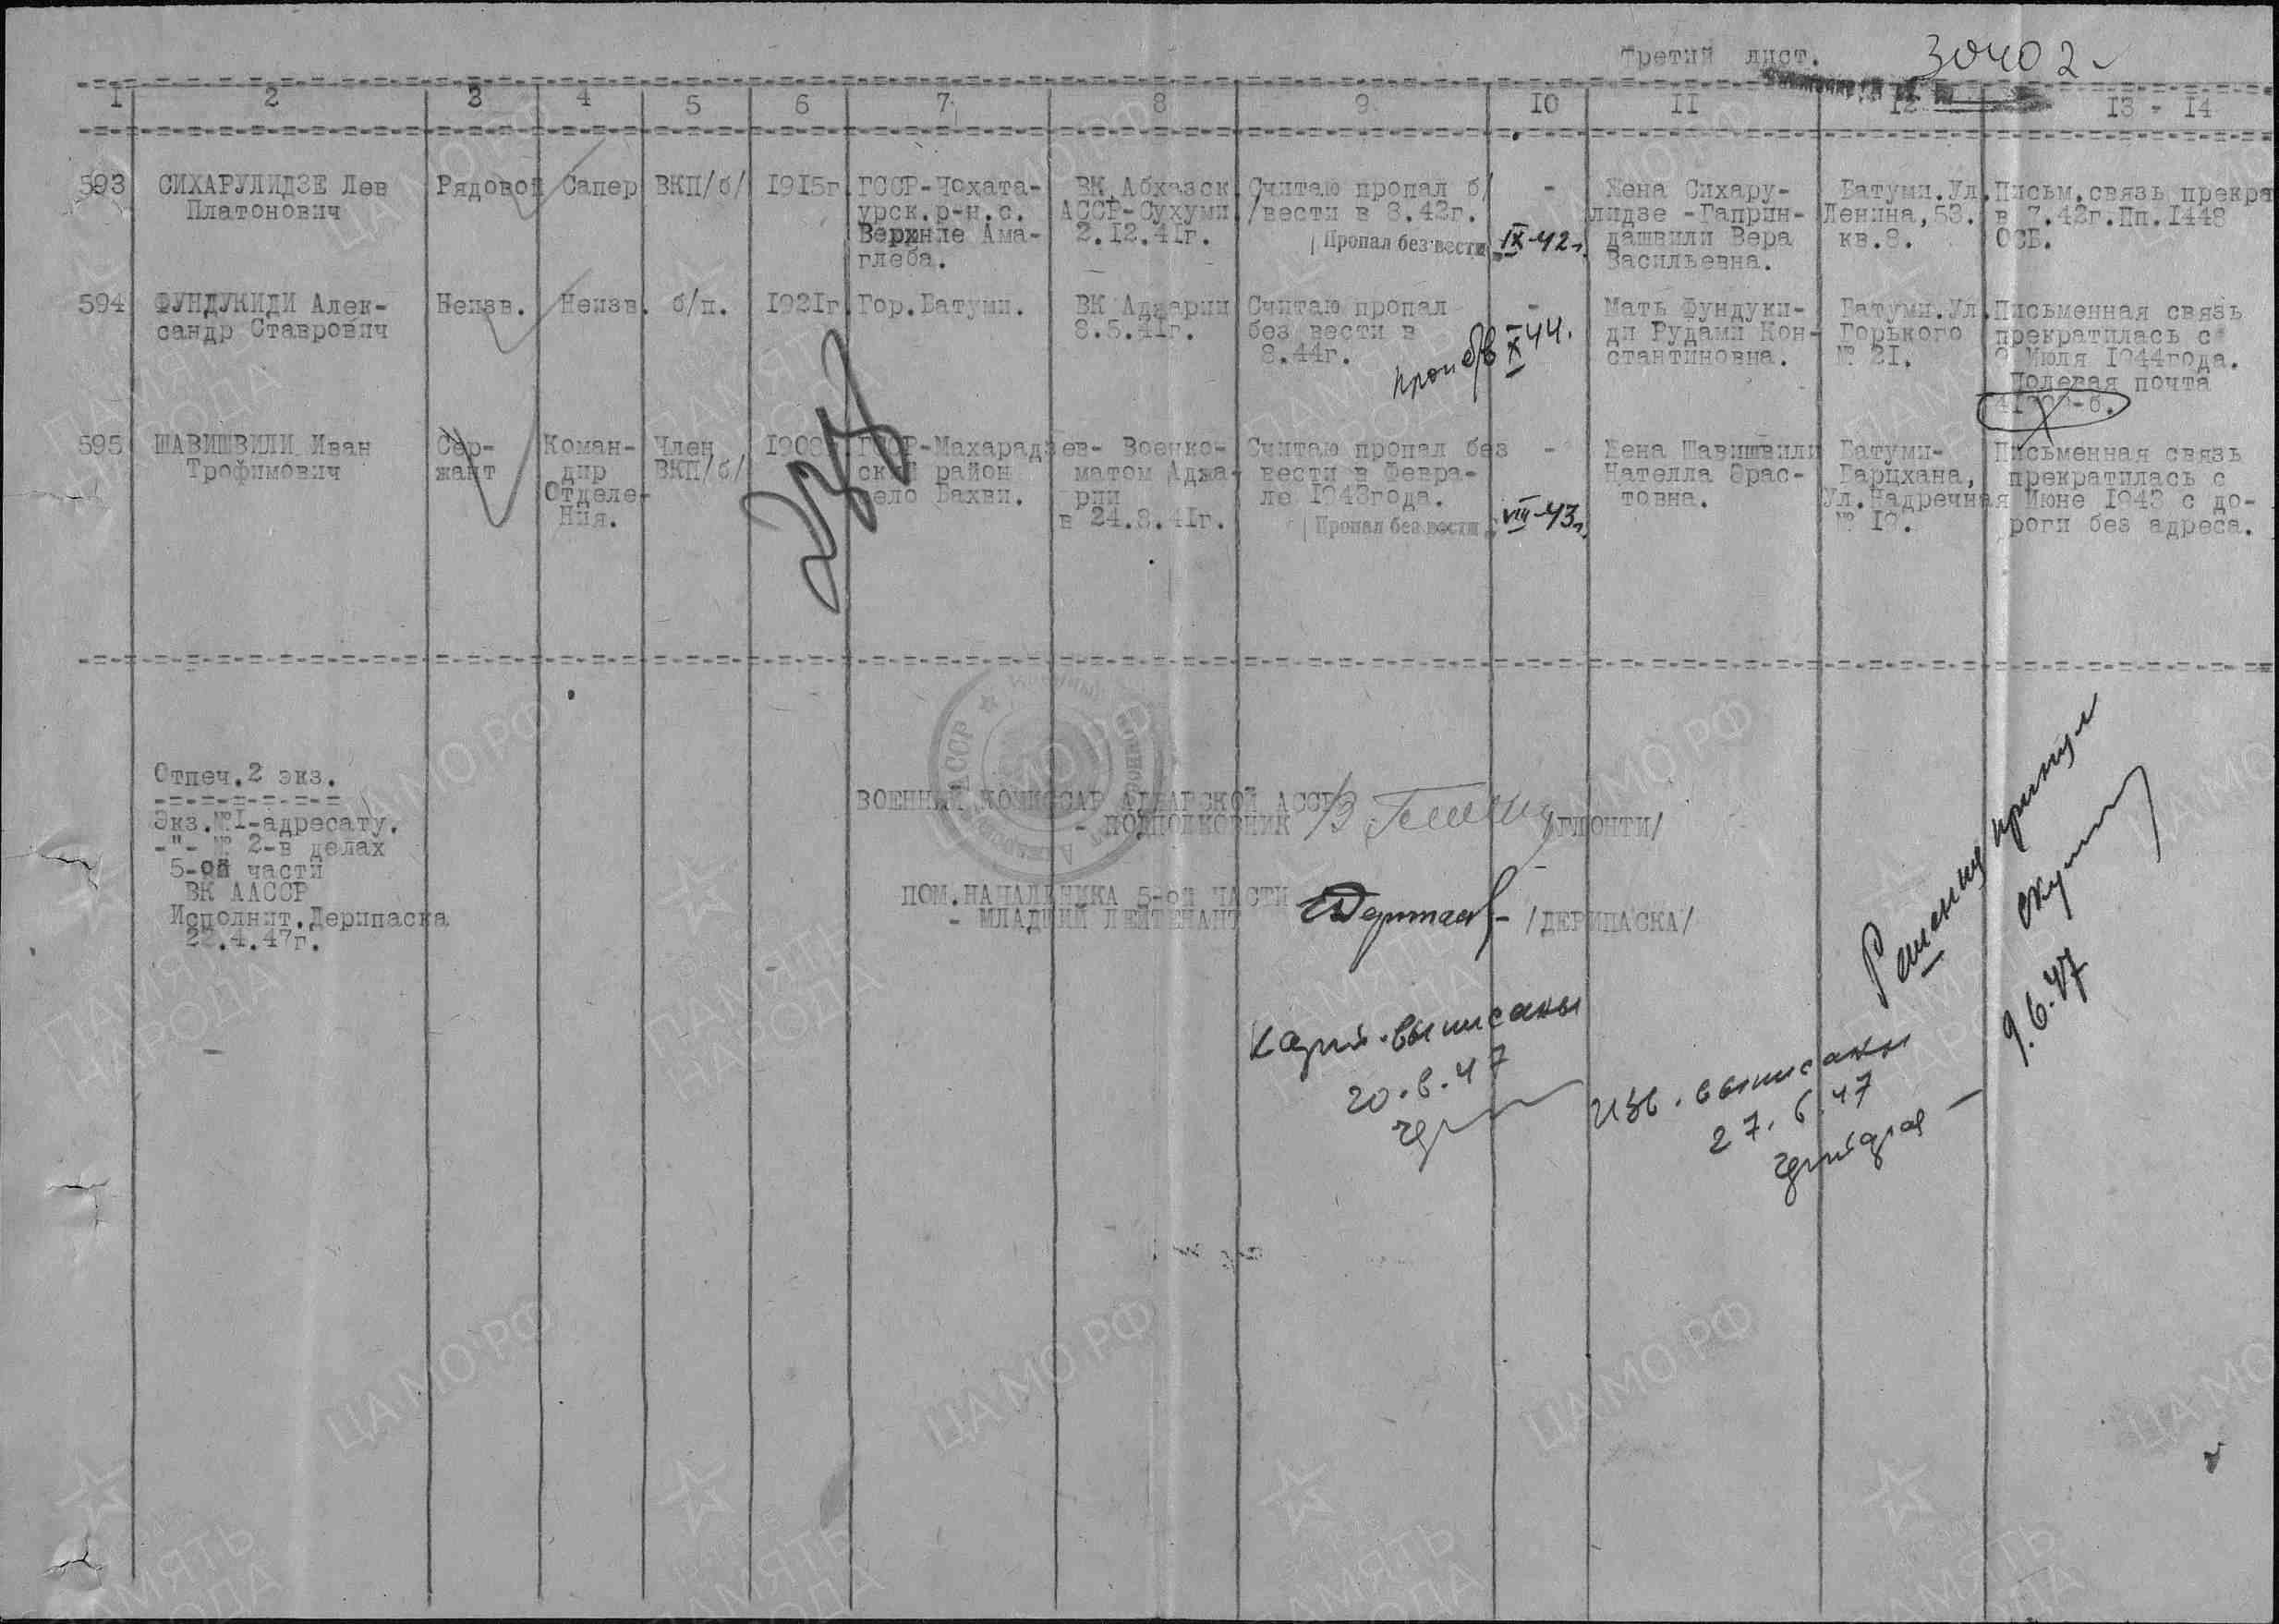 Третий лист.
30402
1 2 3 4 5 6 7 8 9 10 11 12 13 - 14
593
СИХАРУЛИДЗЕ Лев
Платонович
Рядовой
Сапер
ВКП/б/
1915г.
ГССР-Чохата-
урск.р-н.с.
Верхние Ама-
глеба.
ВК Абхазск
АССР-Сухуми
2.12.41г.
Считаю пропал б/
/вести в 8.42г.
Пропал без вести
-
IX-42г.
Жена Сихару-
лидзе -Гаприн-
дашвили Вера
Васильевна.
Батуми.Ул.
Ленина,53.
кв.8.
Письм.связь прекра
в 7.42г.Пп.1448
ОСБ.
594
ФУНДУКИДИ Алек-
сандр Ставрович
Неизв.
Неизв.
б/п.
1921г.
Гор.Батуми.
ВК Аджарии
8.5.41г.
Считаю пропал
без вести в
8.44г.
-
проп б/в X 44.
Мать Фундуки-
ди Рудами Кон-
стантиновна.
Батуми.Ул.
Горького
№ 21.
Письменная связь
прекратилась с
Июля 1944года.
Полевая почта
595
ШАВИШВИЛИ Иван
Трофимович
Сер-
жант
Коман-
дир
Отделе-
Ния.
Член
ВКП/б/
1908
ГССР-Махарадзев-
ский район
село Бахви.
Военко-
матом Аджа-
рии
в 24.8.41г.
Считаю пропал без
вести в Февра-
ле 1943года.
Пропал без вести
-
VIII-43г.
Жена Шавишвили
Нателла Эрас-
товна.
Батуми-
Барцхана,
Ул.Надречная
№ 19.
Письменная связь
прекратилась с
Июне 1943 с до-
роги без адреса.
Отпеч.2 экз.
Экз.№1-адресату.
-"- № 2-в делах
5-ой части
ВК ААССР
Исполнит.Дерипаска
22.4.47г.
ВОЕННЫЙ КОМИССАР АДЖАРСКОЙ АССР
- ПОДПОЛКОВНИК /ГЛОНТИ/
ПОМ.НАЧАЛЬНИКА 5-ой ЧАСТИ
- МЛАДШИЙ ЛЕЙТЕНАНТ - /ДЕРИПАСКА/
Решения принял
9.6.47
выписаны
20.6.47
изв. выписаны
27.6.47
ЦАМО РФ
ПАМЯТЬ
НАРОДА